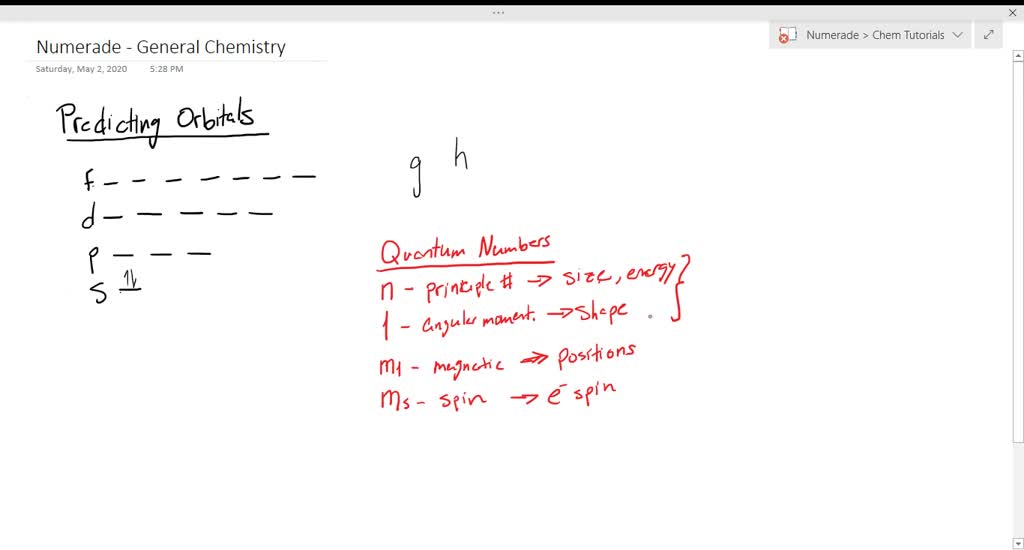 Numerade - General Chemistry
Saturday, May 2, 2020 5:28 PM
Numerade > Chem Tutorials
Predicting Orbitals
f - - - - - - -
d - - - - -
p - - -
s ⥮
g h
Quantum Numbers
n - principle # → size, energy
l - angular moment. → shape
ml - magnetic → positions
ms - spin → e⁻ spin